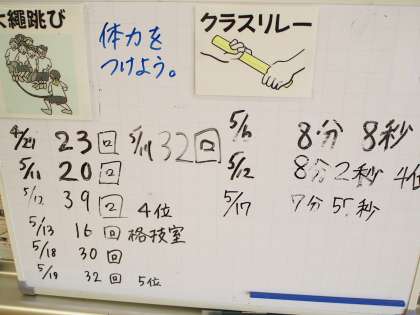 大縄跳び
体力を
つけよう。
クラスリレー
4/21 23回
5/11 20回
5/12 39回 4位
5/13 16回 格技室
5/18 30回
5/19 32回 5位
5/19 32回
5/6 8分8秒
5/12 8分2秒 4位
5/17 7分5秒